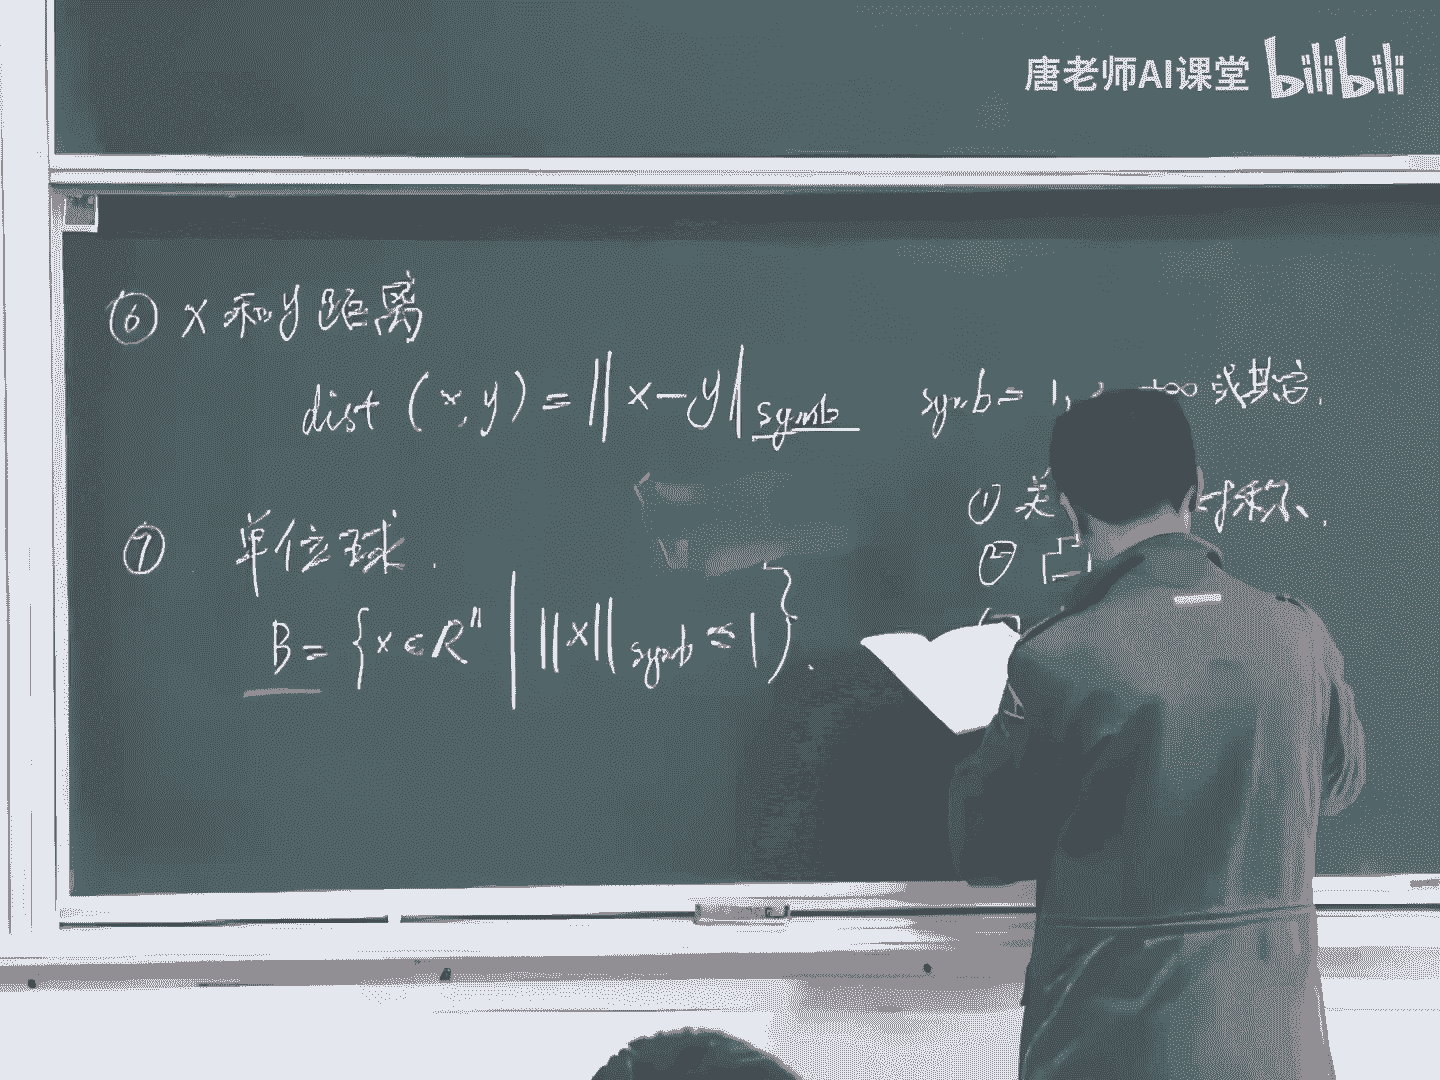 唐老师AI课堂 bilibili
⑥ x 和 y 距离
dist (x, y) = || x-y |symb symb = 1, +∞ 或其它.
① 关 对称.
⑦ 单位球.
②
B = {x ∈ Rⁿ | ||x||symb ≤ 1}.